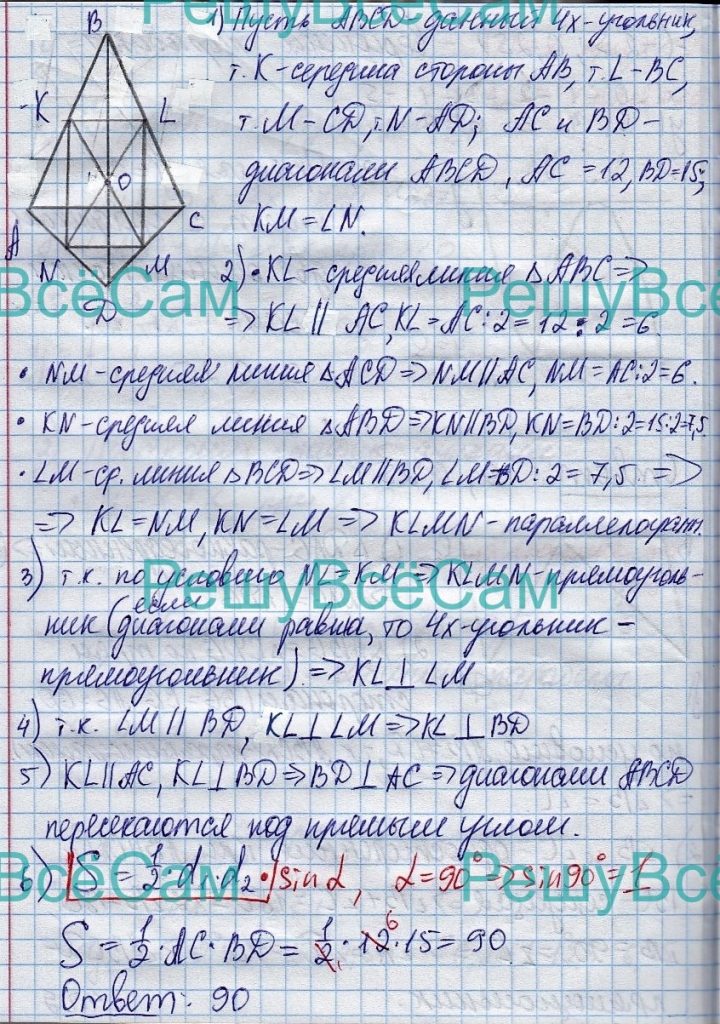 РешуВсёСам
B
K
L
O
A
C
N
M
D
1) Пусть ABCD данный 4х-угольник,
т. K-середина стороны AB, т. L-BC,
т. M-CD, т. N-AD; AC и BD-
диагонали ABCD, AC = 12, BD=15;
KM = LN.
ВсёСам РешуВсё
2) • KL-средняя линия △ABC =>
=> KL || AC, KL = AC:2 = 12:2 = 6.
• NM-средняя линия △ACD => NM||AC, NM = AC:2=6.
• KN-средняя линия △ABD => KN||BD, KN=BD:2=15:2=7,5.
• LM-ср. линия △BCD => LM||BD, LM=BD:2 = 7,5. =>
=> KL = NM, KN = LM => KLMN-параллелограм.
РешуВсёСам
3) т.к. по условию NL=KM => KLMN-прямоуголь-
ник (если диагонали равны, то 4х-угольник-
прямоугольник) => KL⊥LM
4) т.к. LM||BD, KL⊥LM => KL⊥BD
5) KL||AC, KL⊥BD => BD⊥AC => диагонали ABCD
пересекаются под прямым углом.
ВсёСам РешуВсё
6) S = 1/2 · d₁ · d₂ · sin α, α=90° => sin90° = 1
S = 1/2 · AC · BD = 1/2 · 12 · 15 = 90
6
1
Ответ: 90